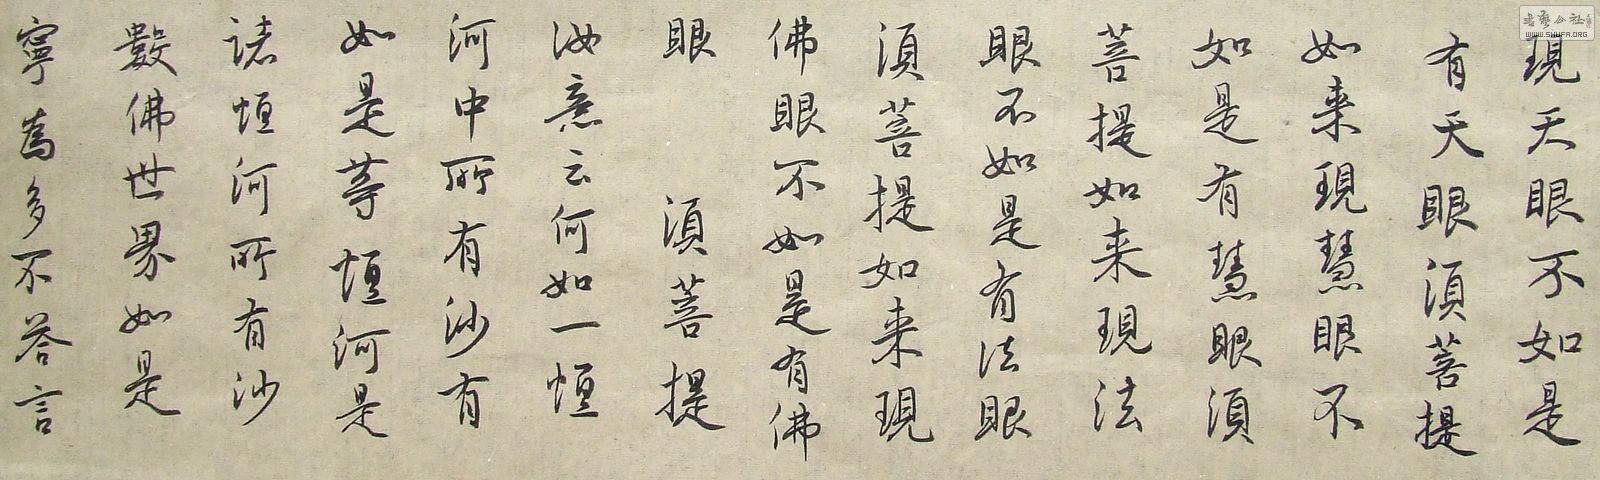 現天眼不如是
有天眼須菩提
如来現慧眼不
如是有慧眼須
菩提如来現法
眼不如是有法眼
須菩提如来現
佛眼不如是有佛
眼 須菩提
汝意云何如一恒
河中所有沙有
如是等恒河是
諸恒河所有沙
數佛世界如是
寧為多不答言
書藝公社
WWW.SHUFA.ORG